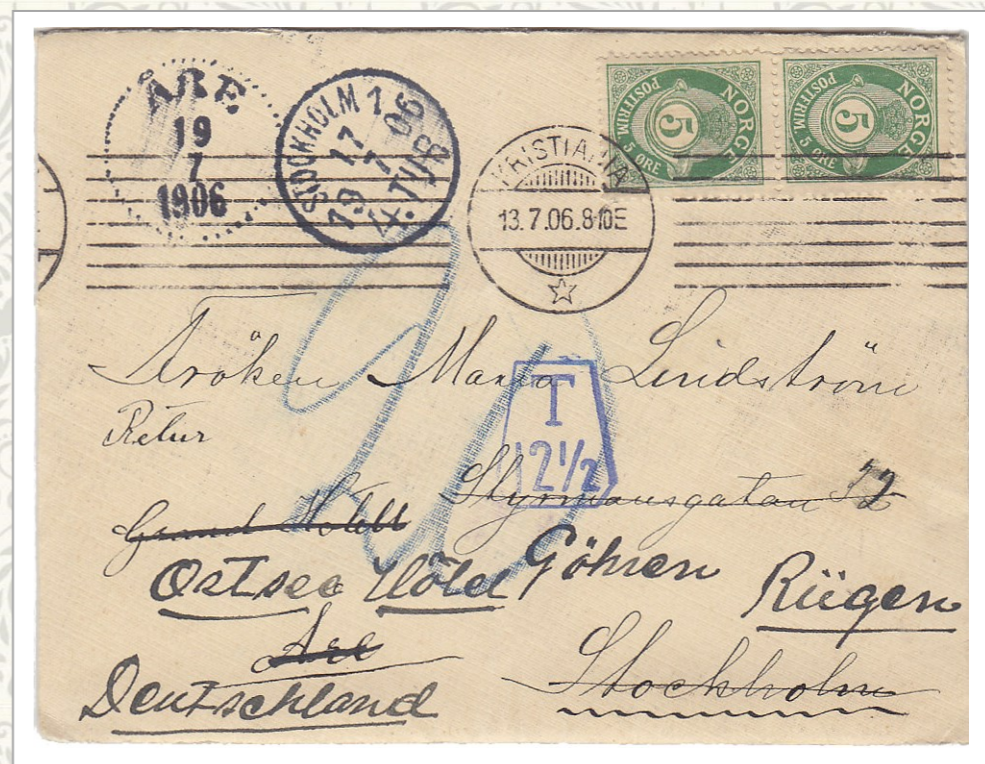 ÅRE
19
7
1906
STOCKHOLM 1
17
7
06
19
4. TUR
KRISTIANIA
13.7.06.8-10E
NORGE
5
POSTFRIM.
5 ØRE
NORGE
5
POSTFRIM.
5 ØRE
Fröken Maria Lindström
Retur
T
12½
Styrmansgatan 52
Grand Hotell
Ostsee Hôtel Göhren Rügen
Åre
Stockholm
Deutschland